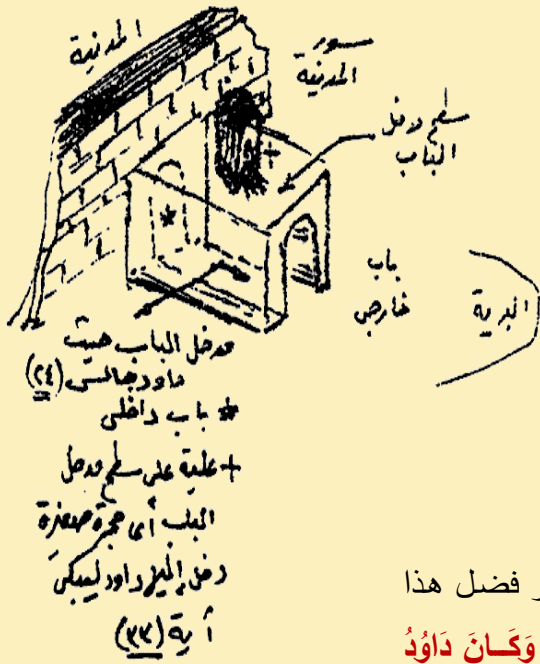 المدينة
سور
المدينة
سطح مدخل
الباب
باب
خارجى
البرية
مدخل الباب حيث
داود جالس (٢٤)
* باب داخلى
+ علية على سطح مدخل
الباب أى حجرة صغيرة
دخل إليها داود ليبكى
أية (٣٣)
فضل هذا
وَكَانَ دَاوُدُ